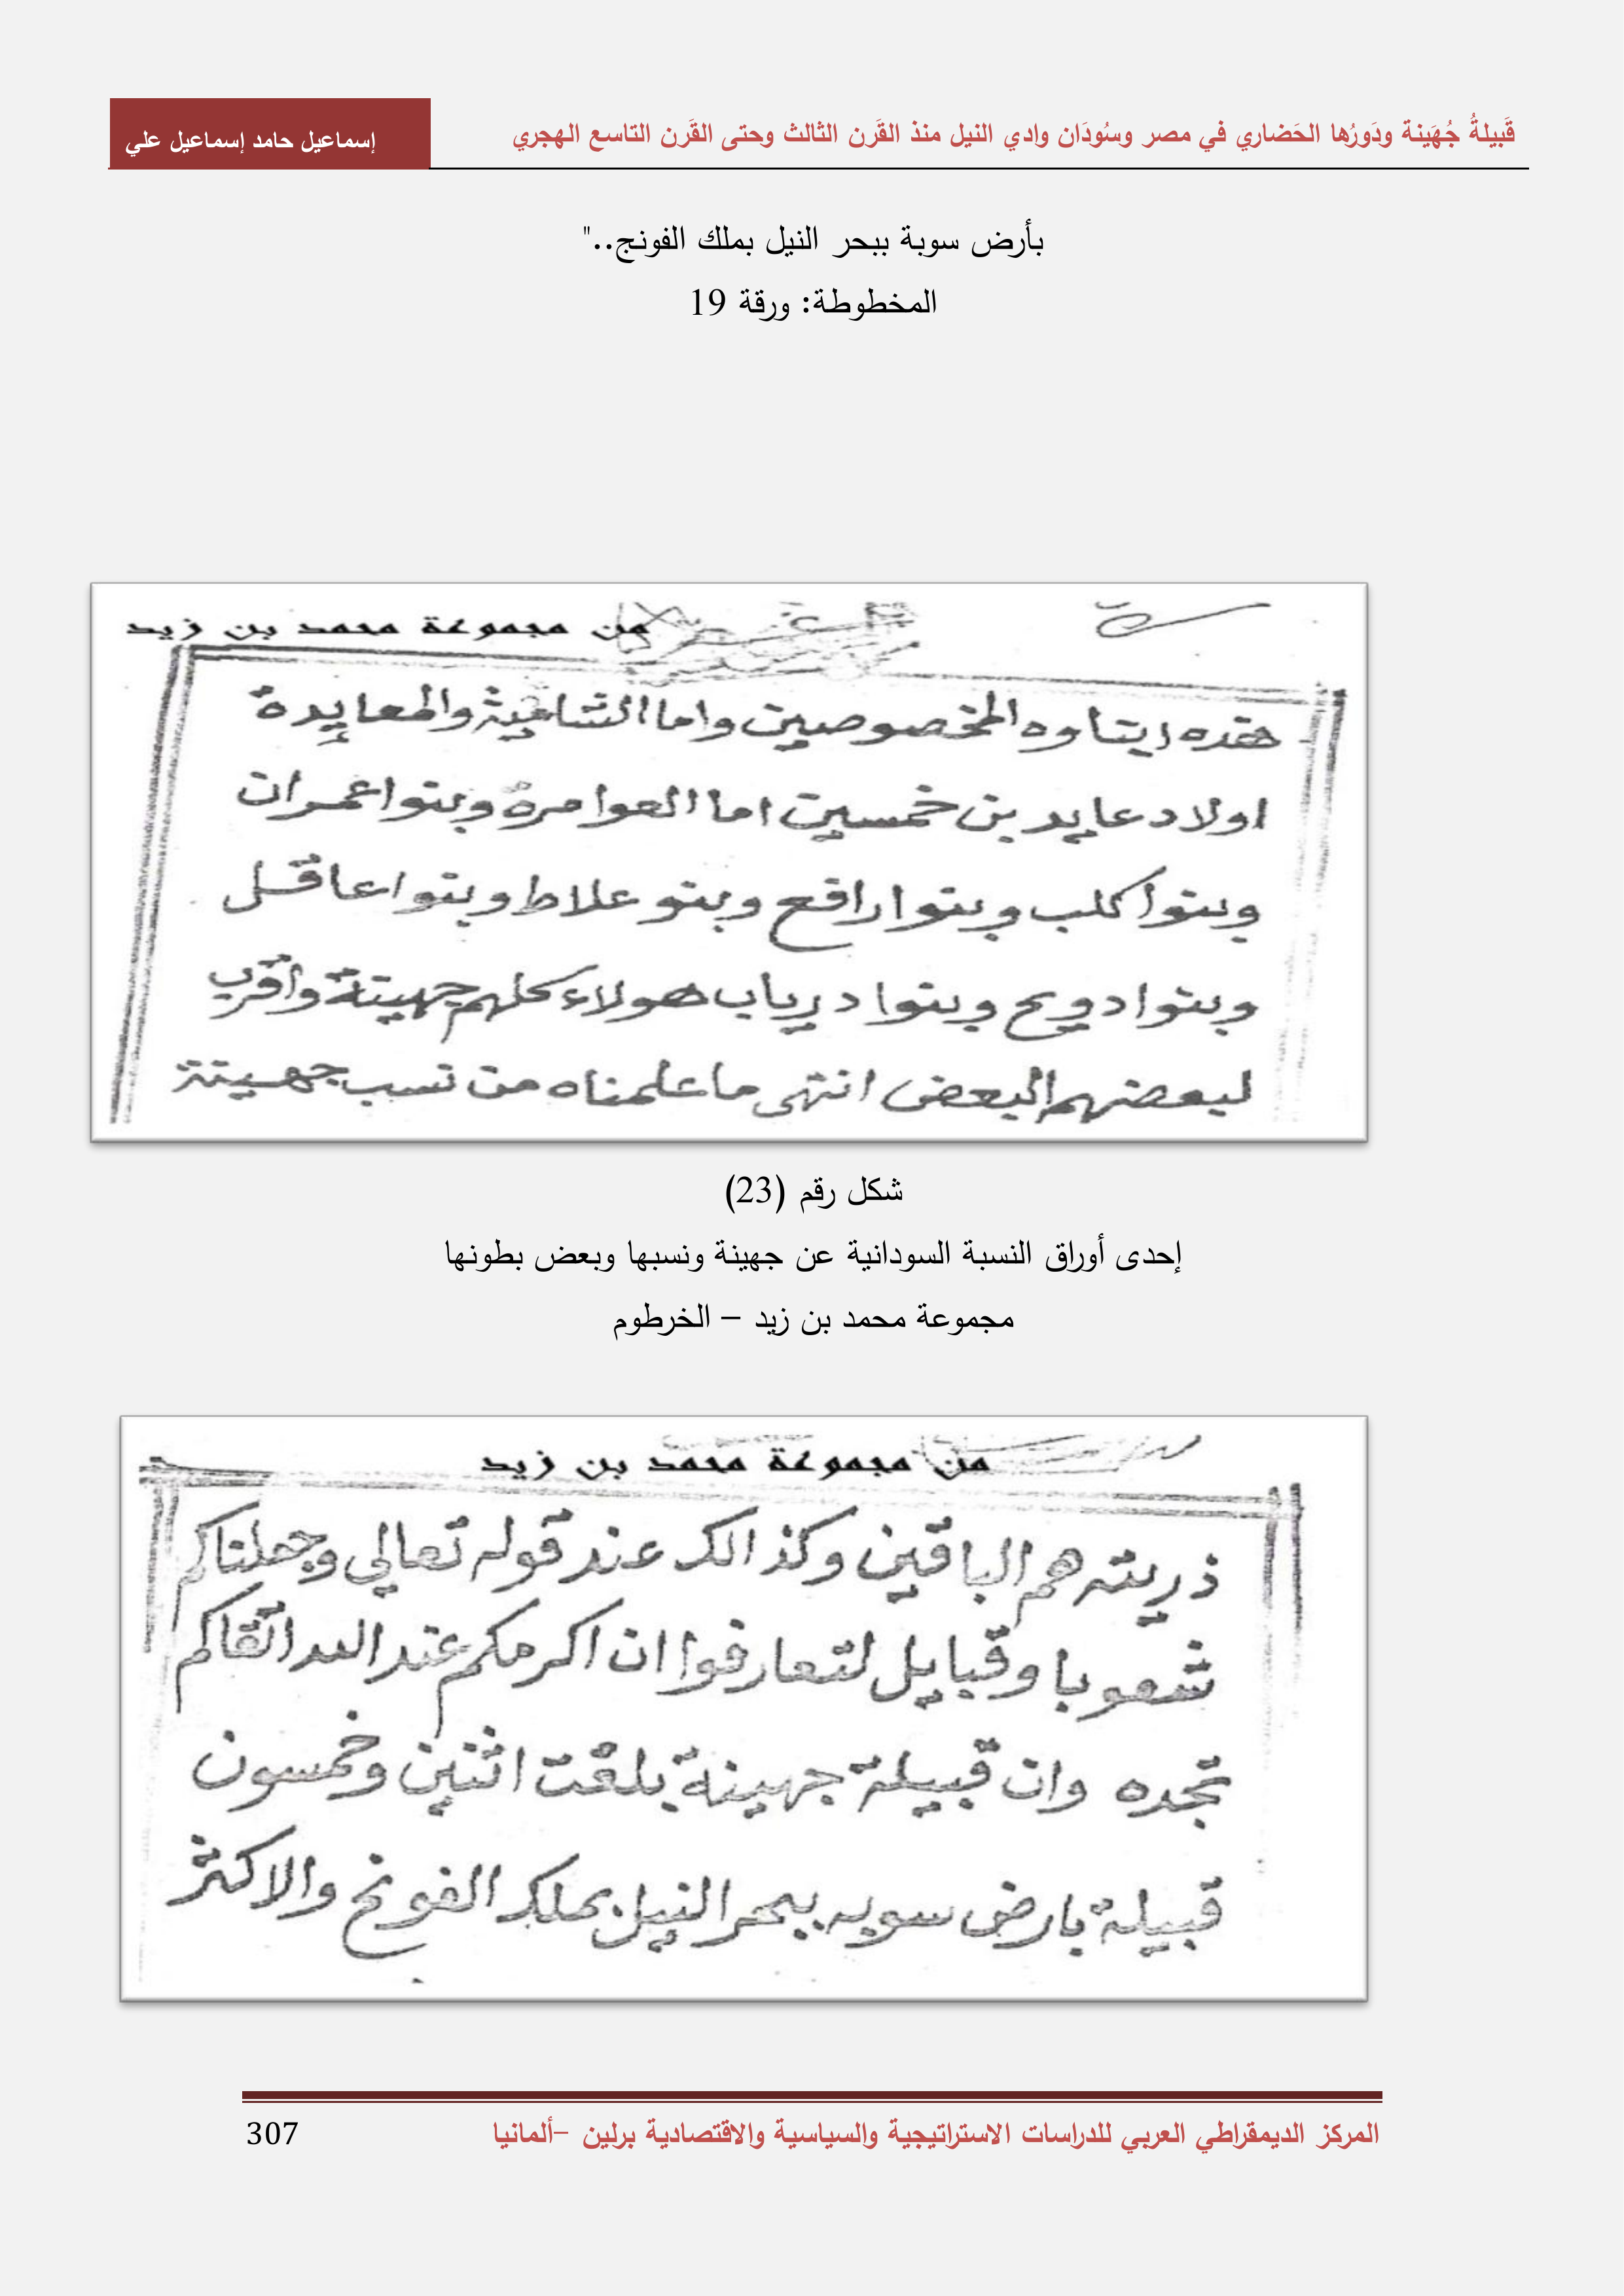 قَبيلةُ جُهَينة ودَورُها الحَضاري في مصر وسُودَان وادي النيل منذ القَرن الثالث وحتى القَرن التاسع الهجري
إسماعيل حامد إسماعيل علي
بأرض سوبة ببحر النيل بملك الفونج.."
المخطوطة: ورقة 19
من مجموعة محمد بن زيد
هذه ابتاوه المخصوصين واما الشاغبة والمعايدة
اولاد عايد بن خمسين اما العوامرة وبنوا عمران
وبنوا كلب وبنوا رافع وبنو علاط وبنوا عاقل
وبنوا دويح وبنوا درياب هولاء كلهم جهينة واقرب
لبعضهم البعض انتهى ما علمناه من نسب جهينة
شكل رقم (23)
إحدى أوراق النسبة السودانية عن جهينة ونسبها وبعض بطونها
مجموعة محمد بن زيد – الخرطوم
من مجموعة محمد بن زيد
ذريته هم الباقين وكذالك عند قوله تعالي وجعلناكم
شعوبا وقبايل لتعارفوا ان اكرمكم عند الله اتقاكم
تجده وان قبيلة جهينة بلغت اثنين وخمسون
قبيلة بارض سوبه ببحر النيل بملك الفونج والاكثر
المركز الديمقراطي العربي للدراسات الاستراتيجية والسياسية والاقتصادية برلين –ألمانيا
307